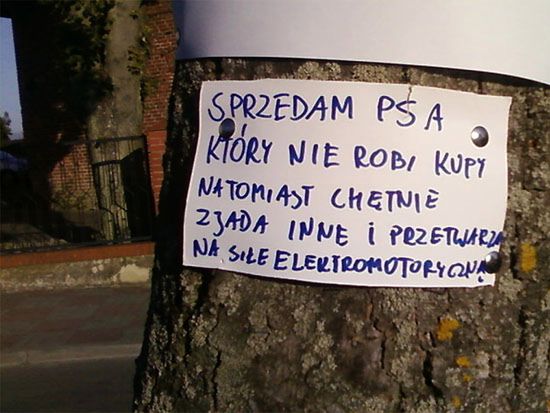 SPRZEDAM PSA
KTÓRY NIE ROBI KUPY
NATOMIAST CHĘTNIE
ZJADA INNE I PRZETWARZA
NA SIŁĘ ELEKTROMOTORYCZNĄ